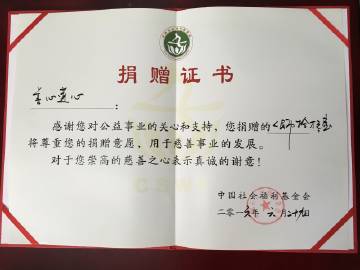 捐赠证书
：
感谢您对公益事业的关心和支持，您捐赠的
将尊重您的捐赠意愿，用于慈善事业的发展。
对于您崇高的慈善之心表示真诚的谢意！
中国社会福利基金会
二〇一 年 六 月 二十九日